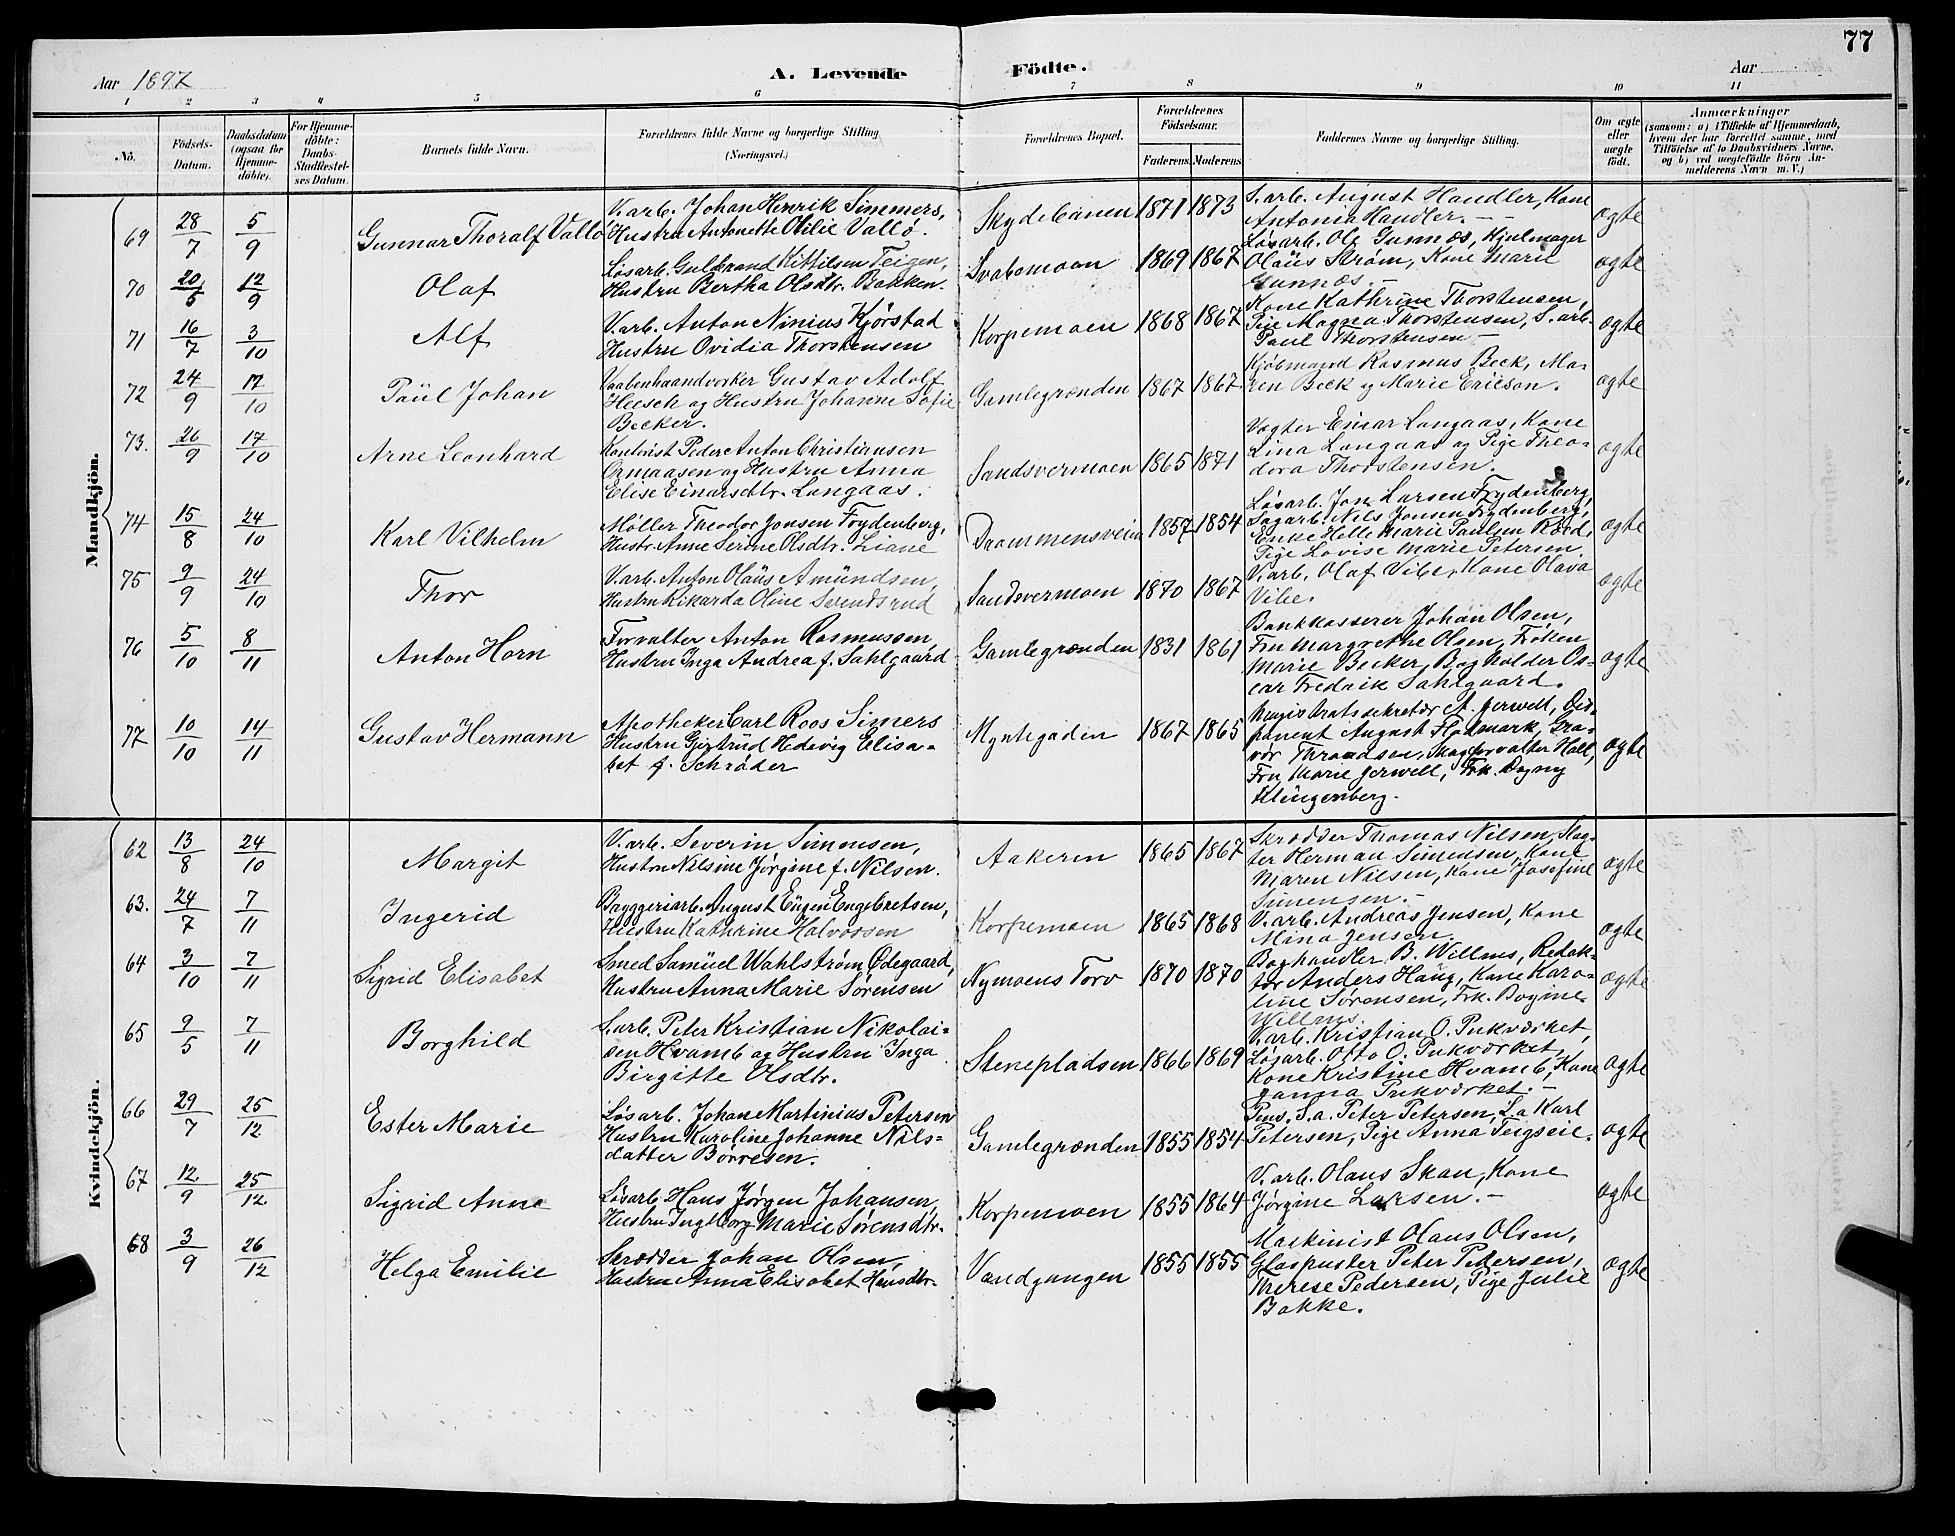 77
Aar 1897
A. Levende Födte.
Aar
1 2 3 4 5 6 7 8 9 10 11
No.
Födsels-Datum.
Daabsdatum (ogsaa for Hjemme-döbte).
For Hjemme-döbte: Daabs-Stadfæstel-ses Datum.
Barnets fulde Navn.
Forældrenes fulde Navne og borgerlige Stilling (Næringsvei.)
Forældrenes Bopæl.
Forældrenes Födselsaar.
Faderens. Moderens.
Faddernes Navne og borgerlige Stilling.
Om ægte eller uægte födt.
Anmærkninger
(saasom: a) i Tilfælde af Hjemmedaab, hvem der har forrettet samme, med Tilföielse af to Daabsvidners Navne. og b) ved uægtefödte Börn An-melderens Navn m. V.)
Mandkjön.
69 28/7 5/9 Gunnar Thoralf Vallö
V.arb. Johan Henrik Simmers,
Hustru Antonette Otilie Vallö.
Skydebanen 1871 1873
S.arb. August Handler, Kone
Antonia Handler. - -
ægte
70 20/5 12/9 Olaf
Løsarb. Gulbrand Kittilsen Teigen,
Hustru Bertha Olsdtr. Bakken.
Svabomoen 1869 1867
Løsarb. Ole Gunnæs, Hjulmager
Olaüs Strøm, Kone Marie
Gunnæs. -
ægte
71 16/7 3/10 Alf
V.arb. Anton Ninius Kjörstad
Hustru Ovidia Thorstensen
Korpemoen 1868 1867
Kone Kathrine Thorstensen,
Pige Magna Thorstensen, S.arb.
Paul Thorstensen -
ægte
72 24/9 17/10 Paül Johan
Vaabenhaandværker Gustav Adolf
Heesch og Hustru Johanne Sofie
Becker.
Gamlegrænden 1867 1867
Kjöbmand Rasmus Beck, Ma-
ren Beck og Marie Ericson.
ægte
73. 26/9 17/10 Arne Leonhard
Kontorist Peder Anton Christiansen
Ormaasen og Hustru Anna
Elise Einarsdtr. Langaas.
Sandsvermoen 1865 1871
Vogter Einar Langaas, Kone
Lina Langaas og Pige Theo-
dora Thorstensen.
ægte
74 15/8 24/10 Karl Vilhelm
Møller Theodor Jonsen Frydenberg,
Hustr. Anne Serine Olsdtr. Liane
Drammensveien 1857 1854
Løsarb. Jon Larsen Frydenberg,
Sagarb. Nils Jonsen Frydenberg,
Enke Helle Marie Paulsen
Pige Lovise Marie Petersen.
ægte
75 9/9 24/10 Thor
V.arb. Anton Olaüs Amündsen,
Hustru Rikarda Oline Svendsrud
Sandsvermoen 1870 1867
V.arb. Olaf Vibe, Kone Olava
Vibe.
ægte
76 5/10 8/11 Anton Horn
Forvalter Anton Rasmussen
Hustru Inga Andrea f. Sahlgaard
Gamlegrænden 1831 1861
Bankkasserer Johan Olsen,
Fru Margrethe Olsen, Frøken
Marie Becker, Bogholder Os-
car Fredrik Sahlgaard.
ægte
77 10/10 14/11 Gustav Hermann
Apotheker Carl Roos Simers
Hustru Gjertrüd Hedevig Elisa-
bet f. Schröder
Myntegaden 1867 1865
Magistratssekretær A. Jerwell, Dis-
ponent August Flodmark, Gra-
vör Throndsen, Skogforvalter Holl,
Fru Marie Jerwell, Frk. Dagny
Klingenberg.
ægte
Kvindekjön.
62 13/8 24/10 Margit
V.arb. Severin Simensen,
Hustru Nilsine Jørgine f. Nilsen.
Aakeren 1865 1867
Skrædder Thomas Nilsen, Slag-
ter Herman Simensen, Kone
Maren Nilsen, Kone Josefine
Simensen. -
ægte
63. 24/7 7/11 Ingerid
Bryggeriarb. August Eügen Engebretsen,
Hustru Kathrine Halvorsen
Korpemoen 1865 1868
V.arb. Andreas Jensen, Kone
Mina Jensen.
ægte
64 3/10 7/11 Sigrid Elisabet
Smed Samüel Wahlstrøm Ødegaard,
Hustru Anna Marie Sørensen
Nymoens Torv 1870 1870
Boghandler B. Willens, Redak-
tør Anders Haüg, Kone Karo-
line Sørensen, Frk. Bogine
Willens.
ægte
65 9/5 7/11 Borghild
S.arb. Peter Kristian Nikolai-
sen Hvamb og Hustru Inga
Birgitte Olsdtr.
Stenepladsen 1866 1869
V.arb. Kristian O. Pukværket,
Løsarb. Otto O. Pukværket,
Kone Kristine Hvamb, Kone
Janna Pukværket. -
ægte
66 29/7 25/12 Ester Marie
Løsarb. Johan Martinius Petersen
Hustru Karoline Johanne Nils-
datter Börresen.
Gamlegrænden 1855 1854
Pens. S.a. Peter Petersen, L.a Karl
Petersen, Pige Anna Teigseie.
ægte
67 12/9 25/12 Sigrid Anna
Løsarb. Hans Jørgen Johansen,
Hustru Ingeborg Marie Sørensdtr.
Korpemoen 1855 1864
V.arb. Olaus Skau, Kone
Jørgine Larsen. -
ægte
68 3/9 26/12 Helga Emilie
Skrædder Johan Olsen,
Hustru Anna Elisabet Hansdtr.
Vandgangen 1855 1855
Maskinist Olaus Olsen,
Glaspuster Peter Petersen,
Therese Pedersen, Pige Julie
Bakke.
ægte